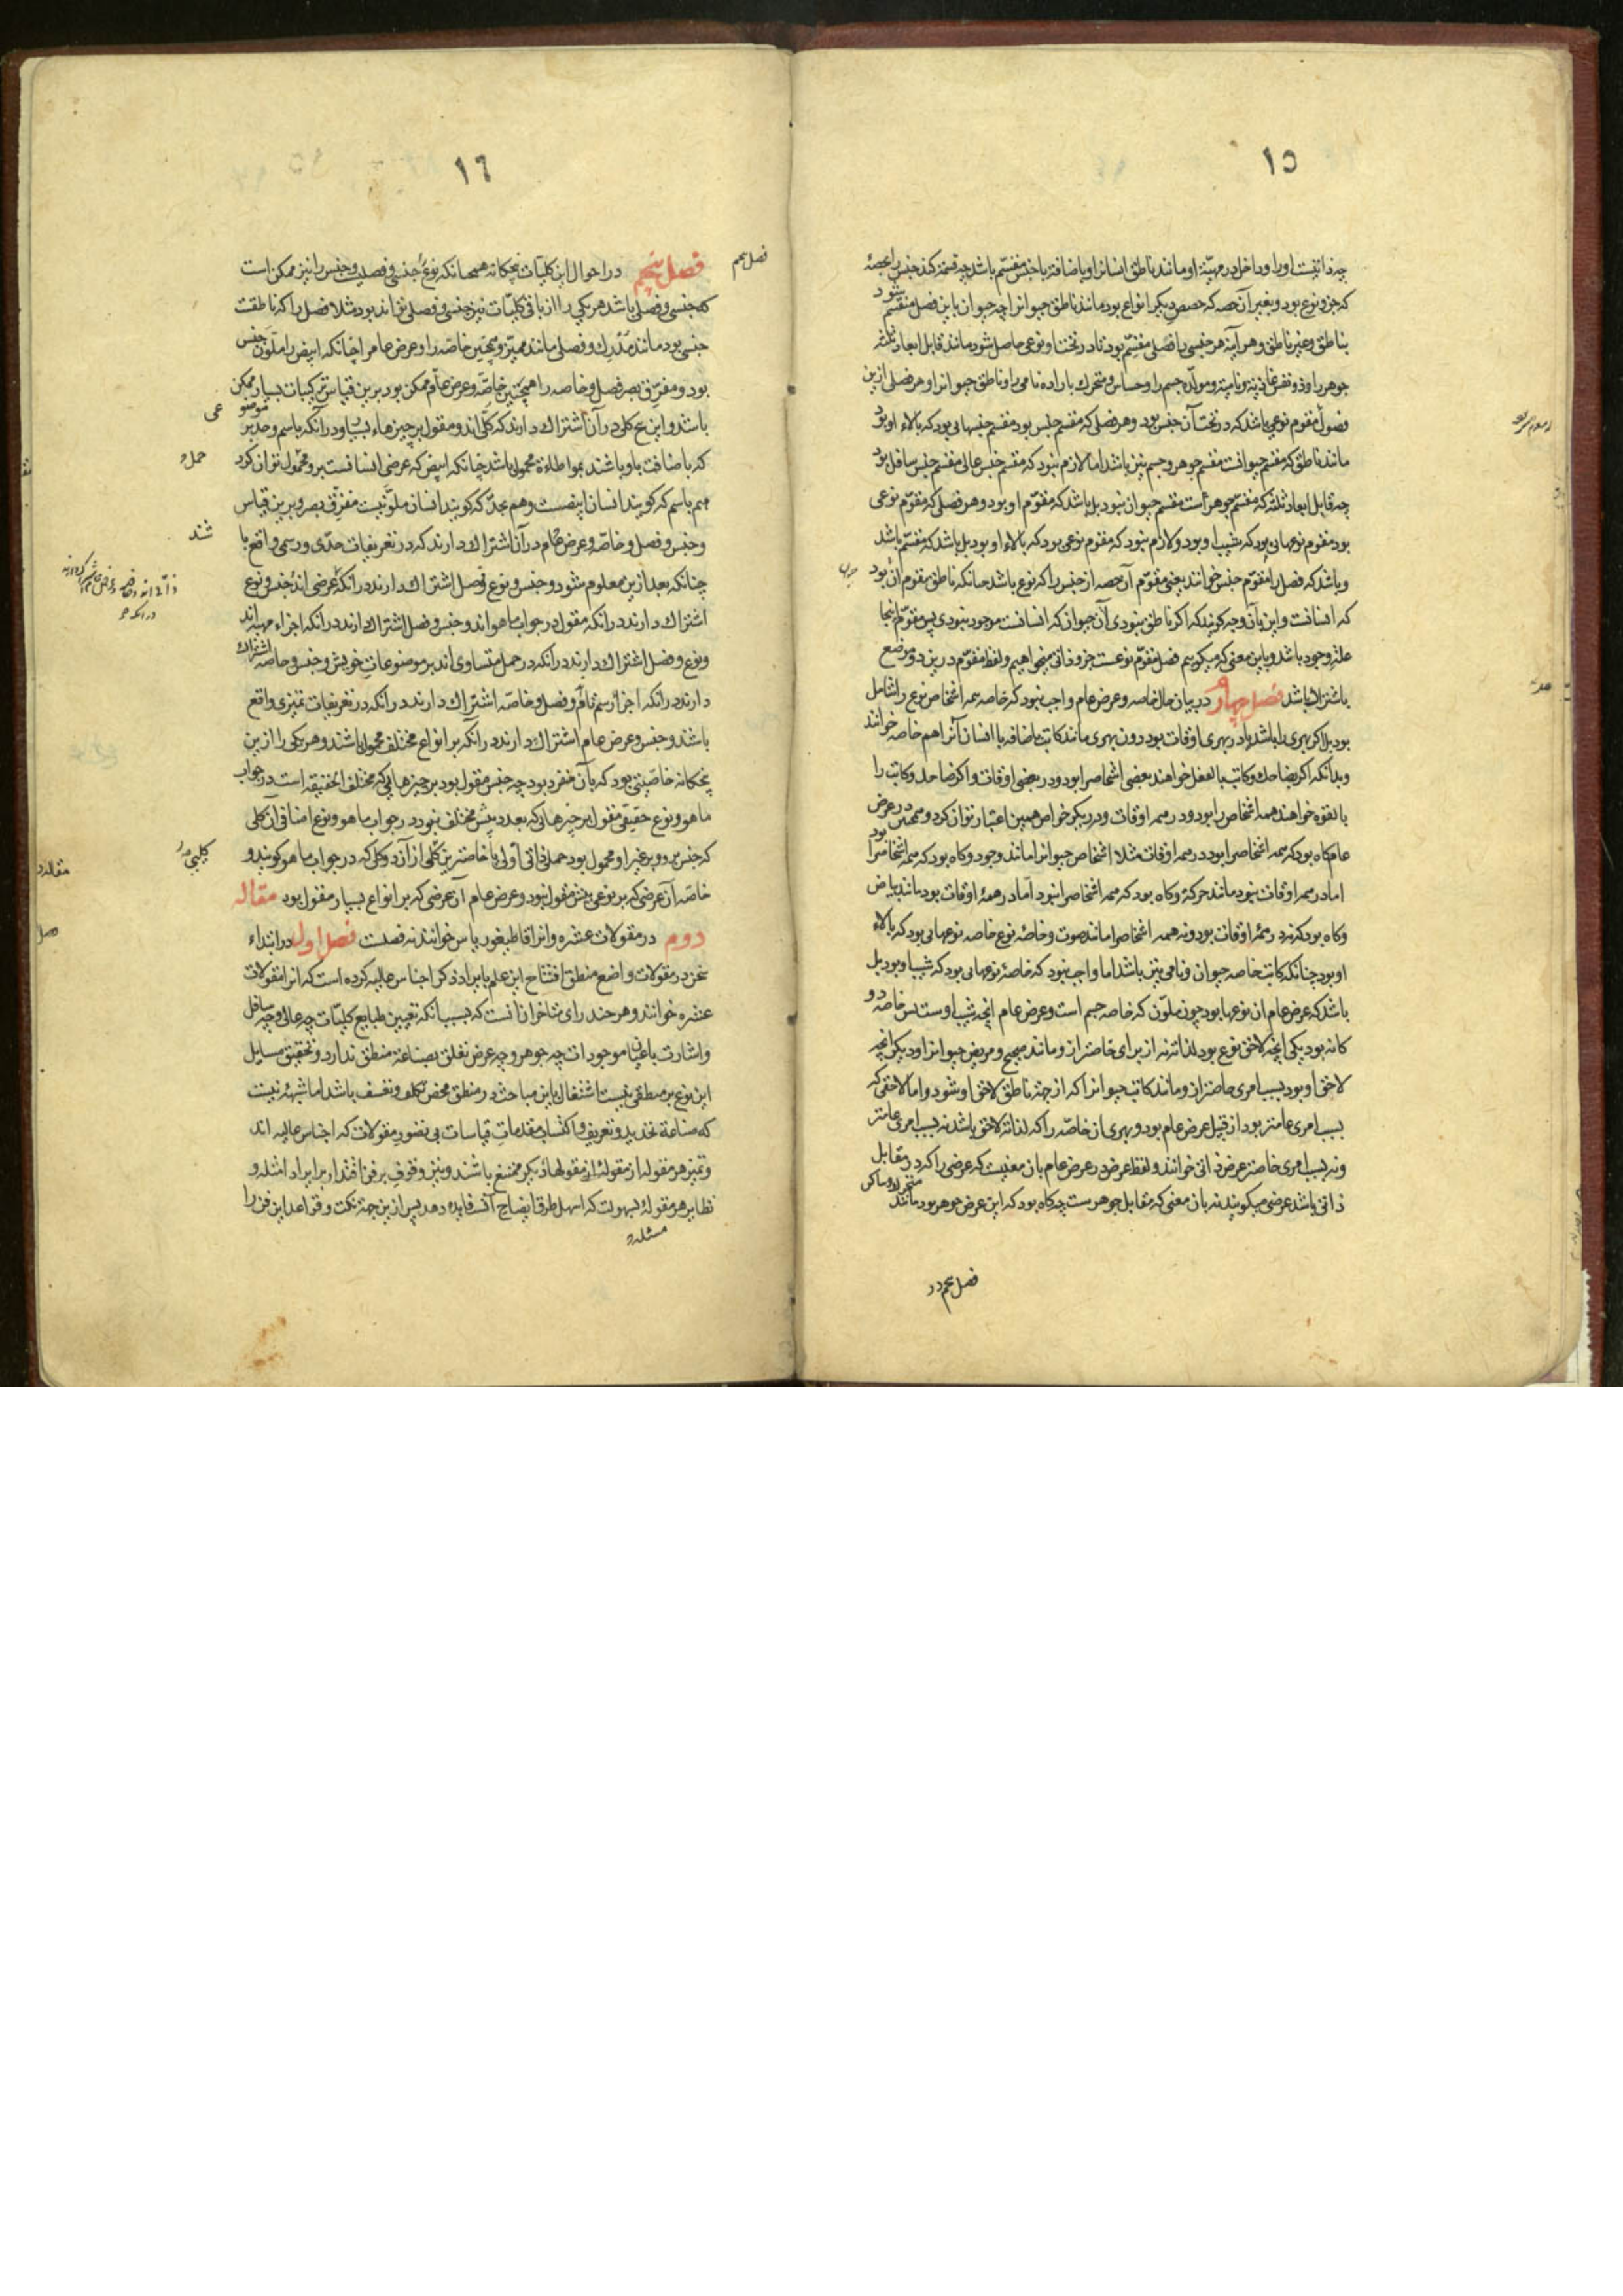 ١٥
چه ذاتیست او را و داخل در مهیّة او مانند ناطق انسانرا و باضافة با جنس مقسّم باشد چه قسمة کند جنس را بحصهٔ
که جزو نوع بود و بغیر آن حصه که حصص دیگر انواع بود مانند ناطق حیوانرا چه حیوان باین فصل منقسم شود
بناطق و غیر ناطق و هر آینه هر جنسی را فصلی مقسّم بود تا در تحت او نوعی حاصل شود مانند قابل ابعاد ثلثه
جوهر را و ذو نفس غاذیه و نامیه و مولّده جسم را و حساس و متحرك باراده نامی را و ناطق حیوانرا و هر فصلی ازین
فصول مقوم نوعی باشد که در تحت آن جنس بود و هر فصلی که مقسم جنس بود مقسم جنسهایی بود که بالاء او بود
مانند ناطق که مقسم حیوانست مقسم جوهر و جسم نیز باشد اما لازم نبود که مقسم جنس عالی مقسم جنس سافل بود
چه قابل ابعاد ثلثه که مقسّم جوهر است مقسم حیوان نبود بل باشد که مقوّم او بود و هر فصلی که مقوّم نوعی
بود مقوم نوعهایی بود که بشیب او بود و لازم نبود که مقوم نوعی بود که بالاء او بود بل باشد که مقسّم باشد
و باشد که فصل را مقوّم جنس خوانند یعنی مقوّم آن حصه از جنس را که نوع باشد چنانکه ناطق مقوم آن بود
که انسانست و این بآن وجه گویند که اگر ناطق نبودی آن حیوان که انسانست موجود نبودی پس مقوّم اینجا
علة وجود باشد و باین معنی که میگوییم فصل مقوّم نوعست جزو ذاتی میخواهیم و لفظ مقوّم درین دو موضع
باشتراك باشد فصل چهارم در بیان حال خاصه و عرض عام واجب نبود که خاصه همه اشخاص نوع را شامل
بود بل اگر بهری را باشد یا در بهری اوقات بود دون بهری مانند کاتب باضافه با انسان آنرا هم خاصه خوانند
و بدانکه اگر بضاحك و کاتب بالفعل خواهند بعضی اشخاص را بود و در بعضی اوقات و اگر ضاحك و کاتب را
بالقوه خواهند همه اشخاص را بود و در همه اوقات و در دیگر خواص همین اعتبار توان کرد و همچنین در عرض
عام گاه بود که همه اشخاص را بود در همه اوقات مثلا اشخاص حیوانرا مانند وجود و گاه بود که همه اشخاص را بود
اما در همه اوقات نبود مانند حرکة و گاه بود که همه اشخاص را نبود امّا در همهٔ اوقات بود مانند بیاض
و گاه بود که نه در همهٔ اوقات بود و نه همه اشخاص را مانند صوت و خاصهٔ نوع خاصه نوعهایی بود که بالاء
او بود چنانکه کاتب خاصه حیوان و نامی نیز باشد اما واجب نبود که خاصهٔ نوعهایی بود که شیب او بود بل
باشد که عرض عام آن نوعها بود چون ملوّن که خاصه جسم است و عرض عام انچه شیب اوست پس خاصه دو
گانه بود یکی انچه لاحق نوع بود لذاته نه از برای خاصتر ازو مانند صحیح و مریض حیوانرا و دیگر انچه
لاحق او بود بسبب امری خاصتر ازو مانند کاتب حیوانرا که از جهة ناطق لاحق او شود و اما لاحقی که
بسبب امری عامتر بود از قبیل عرض عام بود و بهری از خاصّه را که لذاته لاحق باشد نه بسبب امری عامتر
و نه بسبب امری خاصتر عرض ذاتی خوانند و لفظ عرض در عرض عام بان معنیست که عرضی را که در مقابل
ذاتی باشد عرضی میگویند نه بان معنی که مقابل جوهرست چه گاه بود که این عرض جوهر بود مانند متحرك و ساکن
فصل پنجم در
١٦
فصل پنجم
فصل پنجم در احوال این کلیّات پنجگانه همچنانکه نوع را جنسی و فصلیست و جنس را نیز ممکن است
که جنسی و فصلی باشد هر یکی را از باقی کلیّات نیز جنسی و فصلی تواند بود مثلا فصل را که ناطقست
جنسی بود مانند مُدْرِك و فصلی مانند ممیّز و همچنین خاصّه را و عرض عام را چنانکه ابیض را ملوّن جنس
بود و مفرّق بصر فصل و خاصه را همچنین خاصّه و عرض عام ممکن بود برین قیاس ترکیبات بسیار ممکن
باشد و این کلی در آن اشتراك دارند که کلی اند و مقول بر چیزهاء بسیار و در آنکه باسم و حد بر موضوعی
که باضافت باو باشند بمواطاءة محمول باشد چنانکه ابیض که عرضی انسانست برو محمول توان کرد
هم باسم که گویند انسان ابیضست و هم بحدّ که گویند انسان ملوّنیست مفرّق بصر و برین قیاس
و جنس و فصل و خاصّه و عرض عام در آن اشتراك دارند که در تعریفات حدّی و رسمی واقع با
شند
چنانکه بعد ازین معلوم شود و جنس و نوع و فصل اشتراك دارند در آنکه عرضی اند و جنس و نوع
اشتراك دارند در انکه مقول در جواب ماهو اند و جنس و فصل اشتراك دارند در انکه اجزاء مهیة اند
و نوع و فصل اشتراك دارند در آنکه در حمل متساوی اند بر موضوعات خویش و جنس و خاصه اشتراك
دارند در انکه اجزاء رسم تام و فصل و خاصّه اشتراك دارند در انکه در تعریفات تمیزی واقع
باشند و جنس و عرض عام اشتراك دارند در انکه بر انواع مختلف محمول باشند و هر یکی را ازین
پنجگانه خاصّیتی بود که بآن منفرد بود چه جنس مقول بود بر چیزهایی که مختلف الحقیقه است در جواب
ماهو و نوع حقیقی مقول بر چیزهایی که بعدد بیش مختلف نبود در جواب ماهو و نوع اضافی آن کلی
که جنس برو و بر غیر او محمول بود حملی ذاتی اولی یا خاصترین کلی از آن دو کلی که در جواب ماهو گویند و
خاصّه آن عرضی که بر نوعی بیش مقول نبود و عرض عام آن عرضی که بر انواع بسیار مقول بود مقاله
دوم در مقولات عشره و انرا قاطیغوریاس خوانند نه فصلست فصل اول در ابتداء
سخن در مقولات واضع منطق افتتاح این علم بایراد ذکر اجناس عالیه کرده است که انرا مقولات
عشره خوانند و هر چند رای متاخران آنست که بسبب انکه تعیین طبایع کلیّات چه عالی و چه سافل
و اشارت باعیان موجودات چه جوهر و چه عرض تعلق بصناعة منطق ندارد و تحقیق مسایل
این نوع بر منطقی نیست اشتغال باین مباحث در منطق محض تکلف و تعسف باشد اما شبهة نیست
که صناعة تحدید و تعریف و اکتساب مقدمات قیاسات بی تصور مقولات که اجناس عالیه اند
و تمیز هر مقوله از مقولهٔ از مقولهاء دیگر ممتنع باشند و نیز وقوف برین فن اقتدار بر ایراد امثله و
نظایر هر مقولهٔ بسهولت که اسهل طرق ایضاح آنست فایده دهد پس ازین جهة نکت و قواعد این فن را